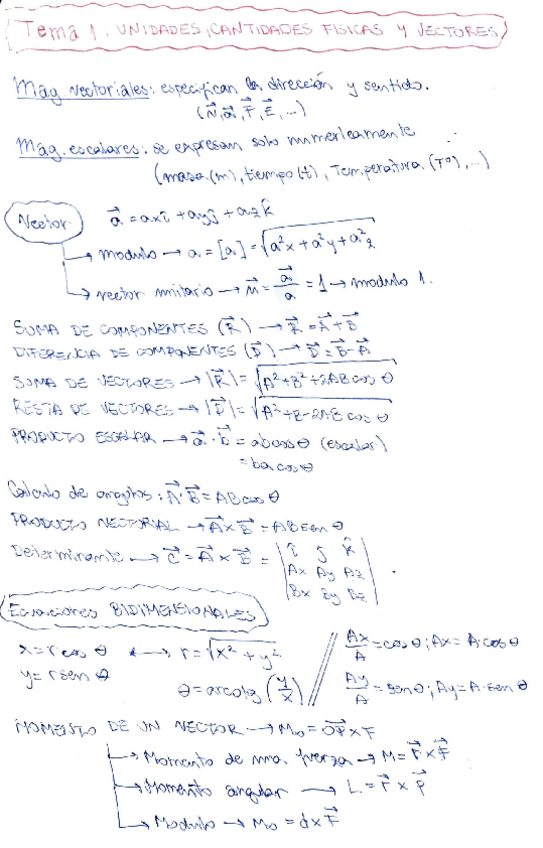 Tema 1. UNIDADES, CANTIDADES FISICAS Y VECTORES
Mag. vectoriales: especifican la dirección y sentido.
(V⃗, a⃗, F⃗, E⃗, ...)
Mag. escalares: se expresan solo numericamente
(masa(m), tiempo(t), Temperatura (Tº), ...)
Vector a⃗ = axî + ayĵ + azk̂
modulo → a = [a] = √a²x + a²y + a²z
vector unitario → u⃗ = a⃗/a = 1 → modulo 1.
SUMA DE COMPONENTES (R⃗) → R⃗ = A⃗ + B⃗
DIFERENCIA DE COMPONENTES (D⃗) → D⃗ = B⃗ - A⃗
SUMA DE VECTORES → |R⃗| = √A² + B² + 2AB cos θ
RESTA DE VECTORES → |D⃗| = √A² + B - 2AB cos θ
PRODUCTO ESCALAR → a⃗ · b⃗ = ab cos θ (escalar)
= ba cos θ
Calculo de angulos: A⃗ · B⃗ = AB cos θ
PRODUCTO VECTORIAL → A⃗ x B⃗ = AB sen θ
Determinante → C⃗ = A⃗ x B⃗ = | î ĵ k̂ |
| Ax Ay Az |
| Bx By Bz |
Ecuaciones BIDIMENSIONALES
x = r cos θ ⟷ r = √x² + y²
y = r sen θ
θ = arcotg (y/x)
Ax/A = cos θ; Ax = A·cos θ
Ay/A = sen θ; Ay = A·sen θ
MOMENTO DE UN VECTOR → Mo = OP⃗ x F
Momento de una fuerza → M = r⃗ x F⃗
Momento angular → L = r⃗ x p⃗
Modulo → Mo = d x F⃗